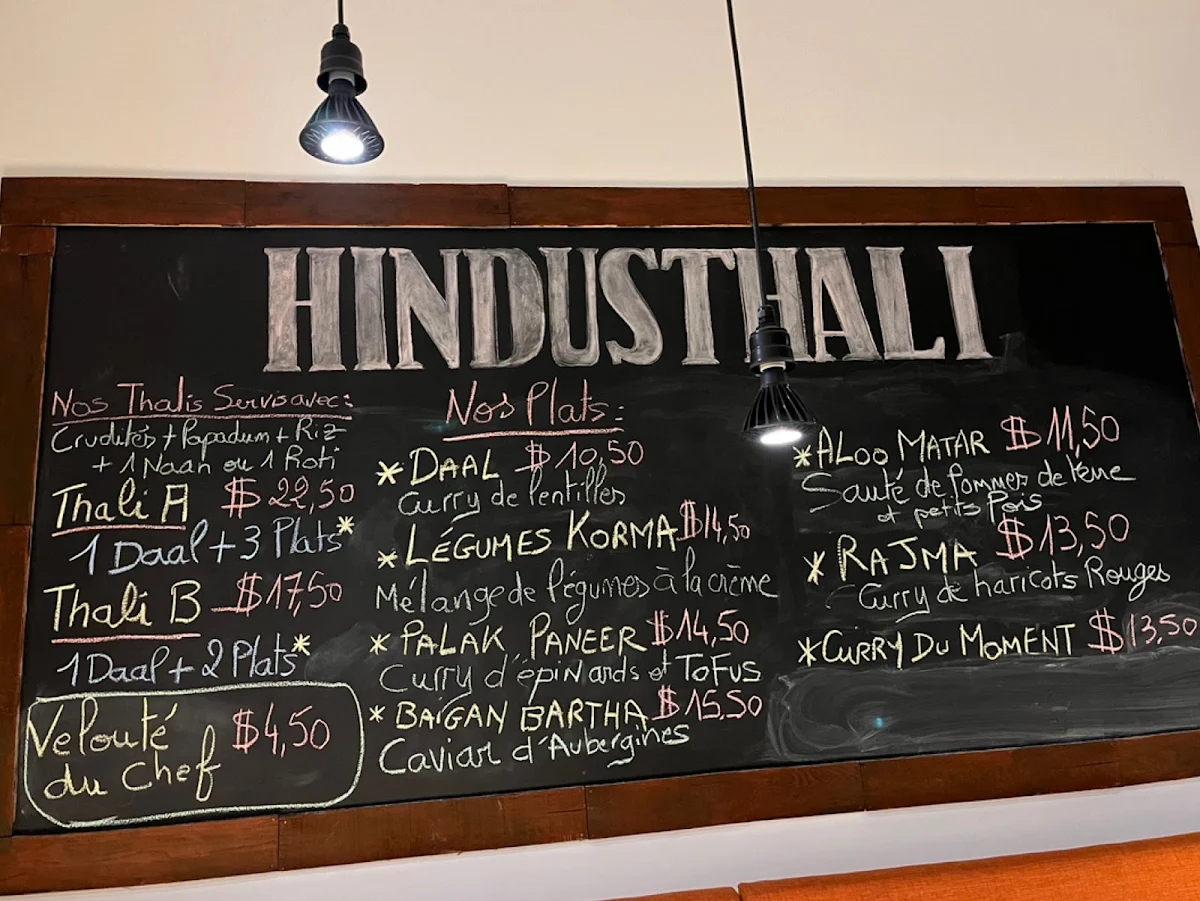 HINDUSTHALI
Nos Thalis Servis avec:
Crudités + Papadum + Riz
+ 1 Naan ou 1 Roti
Thali A $22,50
1 Daal + 3 Plats*
Thali B $17,50
1 Daal + 2 Plats*
Velouté $4,50
du Chef
Nos Plats:
* DAAL $10,50
Curry de lentilles
* LÉGUMES KORMA $14,50
Mélange de légumes à la crème
* PALAK PANEER $14,50
Curry d'épinards et TOFUS
* BAÏGAN BARTHA $15,50
Caviar d'Aubergines
* ALOO MATAR $11,50
Sauté de Pommes de terre
et petits Pois
* RAJMA $13,50
Curry de haricots Rouges
* CURRY DU MOMENT $13,50